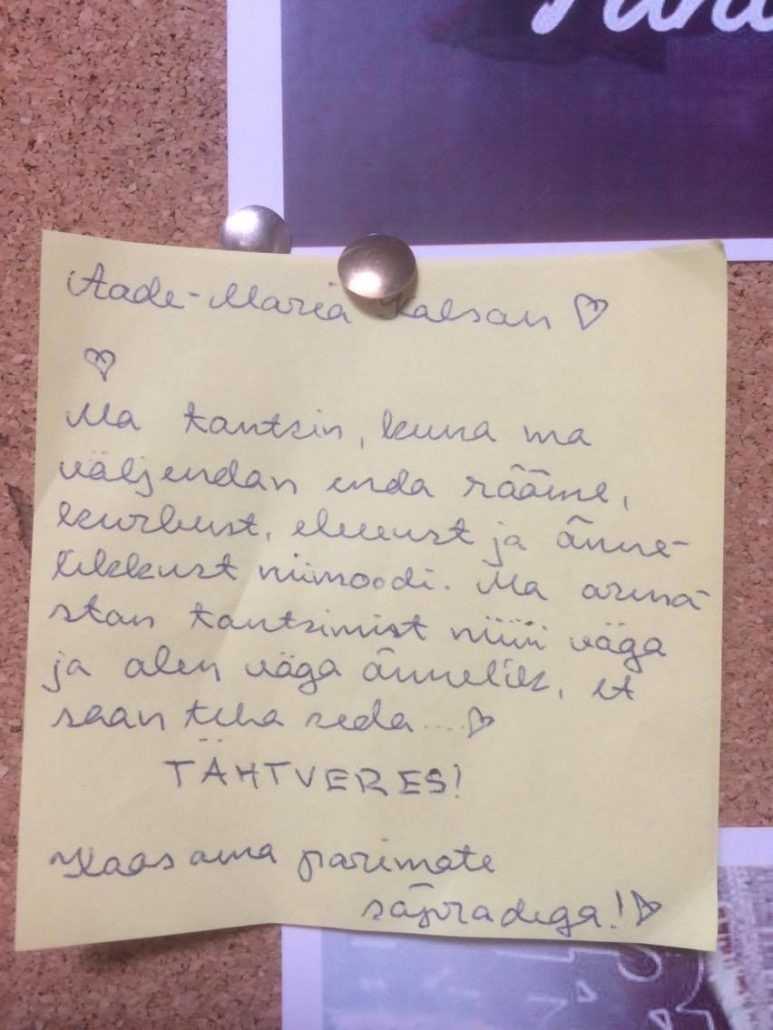 Aade-Maria Kalsan ♡
♡
Ma tantsin, kuna ma
väljendan enda rõõme,
kurbust, elevust ja õnne-
likkust niimoodi. Ma arma-
stan tantsimist nüüü väga
ja olen väga õnnelik, et
saan teha seda....♡
TÄHTVERES!
Koos oma parimate
sõpradega!♡